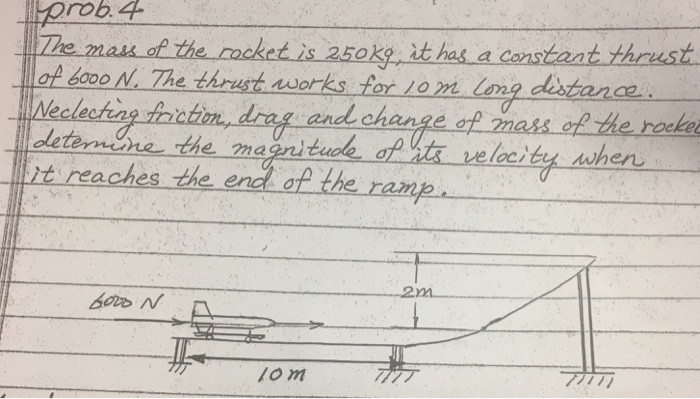 prob. 4
The mass of the rocket is 250kg, it has a constant thrust
of 6000 N. The thrust works for 10 m long distance.
Neclecting friction, drag and change of mass of the rocke
detemine the magnitude of its velocity when
it reaches the end of the ramp.
2m
6000 N
10 m